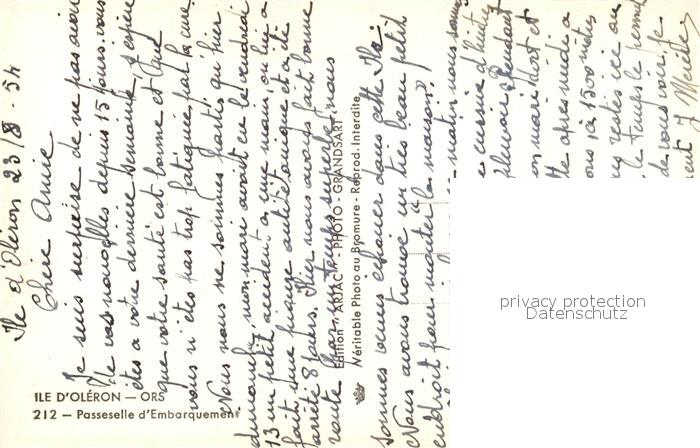 Ile d'Oléron 23/8.54
Chère Amie
Je suis surprise de ne pas avoir
de vos nouvelles depuis 15 jours. vous
êtes à votre dernière semaine, j'espère
que votre santé est bonne et que
vous n'êtes pas trop fatiguée par la cure.
Nous nous ne sommes partis qu'hier
dimanche, mon mari avait eu le vendredi
13 un petit accident à une main, on lui a
fait une piqûre antitétanique et a été
arrêté 8 jours. Hier nous avons fait bonne
route par un temps superbe, nous
sommes venus échouer dans cette Ile.
Nous avons trouvé un très beau petit
endroit pour monter "la maison",
matin nous
pleuvoir. Pendant
mari dort et
après-midi a
à 1500 mètres
restes ici au
le temps le permet
de vous voir, je
Edition "ARJAC" - PHOTO - GRANDSART
Véritable Photo au Bromure - Reprod. Interdite
ILE D'OLÉRON — ORS
212 — Passeselle d'Embarquement
privacy protection
Datenschutz